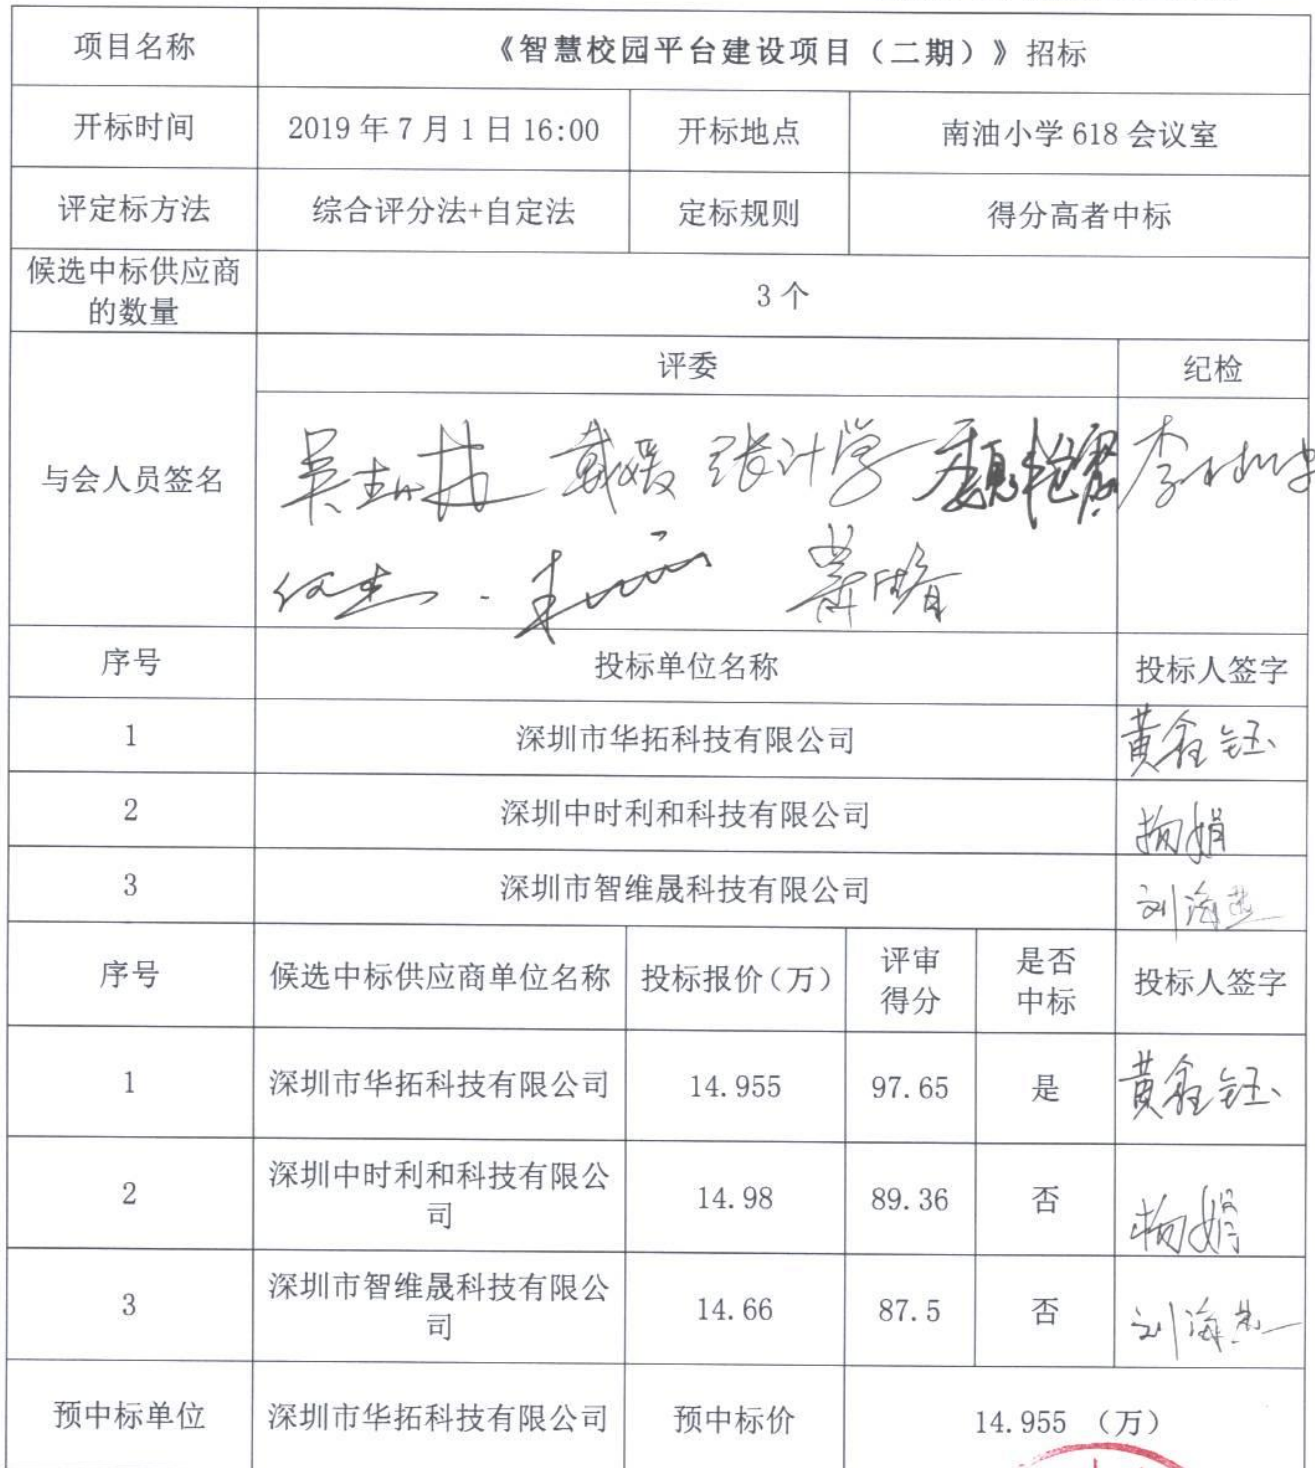 项目名称 《智慧校园平台建设项目（二期）》招标
开标时间 2019年7月1日16:00 开标地点 南油小学618会议室
评定标方法 综合评分法+自定法 定标规则 得分高者中标
候选中标供应商
的数量
3个
与会人员签名
评委 纪检
戴媛 张计学
何杰
序号 投标单位名称 投标人签字
1 深圳市华拓科技有限公司 黄鑫钰
2 深圳中时利和科技有限公司
3 深圳市智维晟科技有限公司
序号 候选中标供应商单位名称 投标报价（万）
评审
得分
是否
中标
投标人签字
1 深圳市华拓科技有限公司 14.955 97.65 是 黄鑫钰
2
深圳中时利和科技有限公
司
14.98 89.36 否
3
深圳市智维晟科技有限公
司
14.66 87.5 否
预中标单位 深圳市华拓科技有限公司 预中标价 14.955 （万）